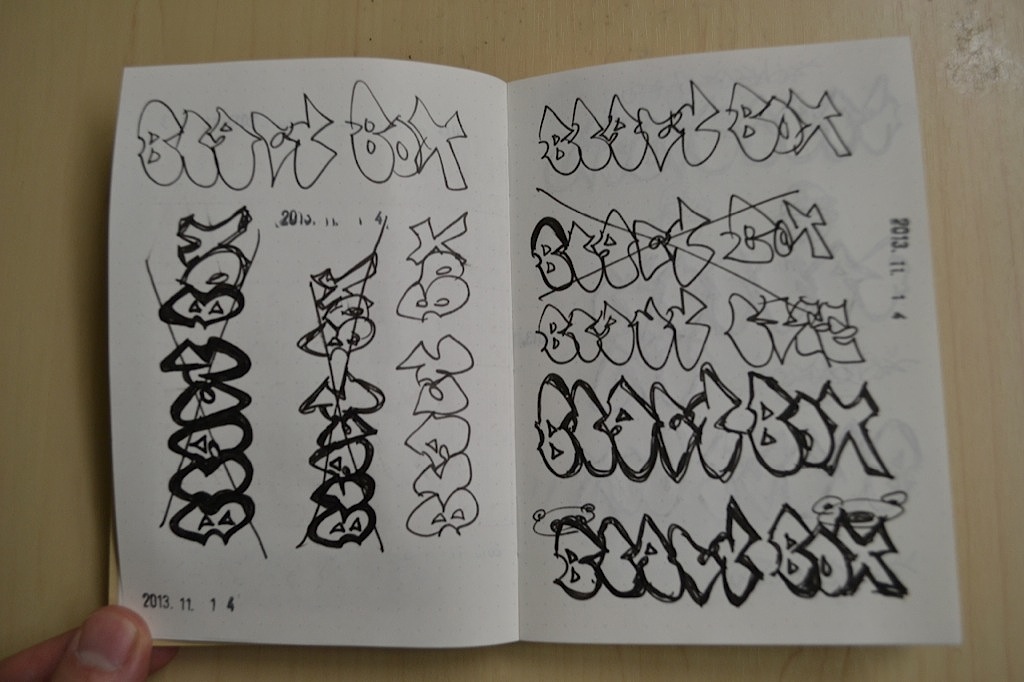 BLACK BOX
2013. 11. 1 4
BLACK BOX
BLACK BOX
BLACK BOX
2013. 11. 1 4
BLACK BOX
BLACK BOX
2013. 11. 1 4
BLACK
BLACK BOX
BLACK BOX